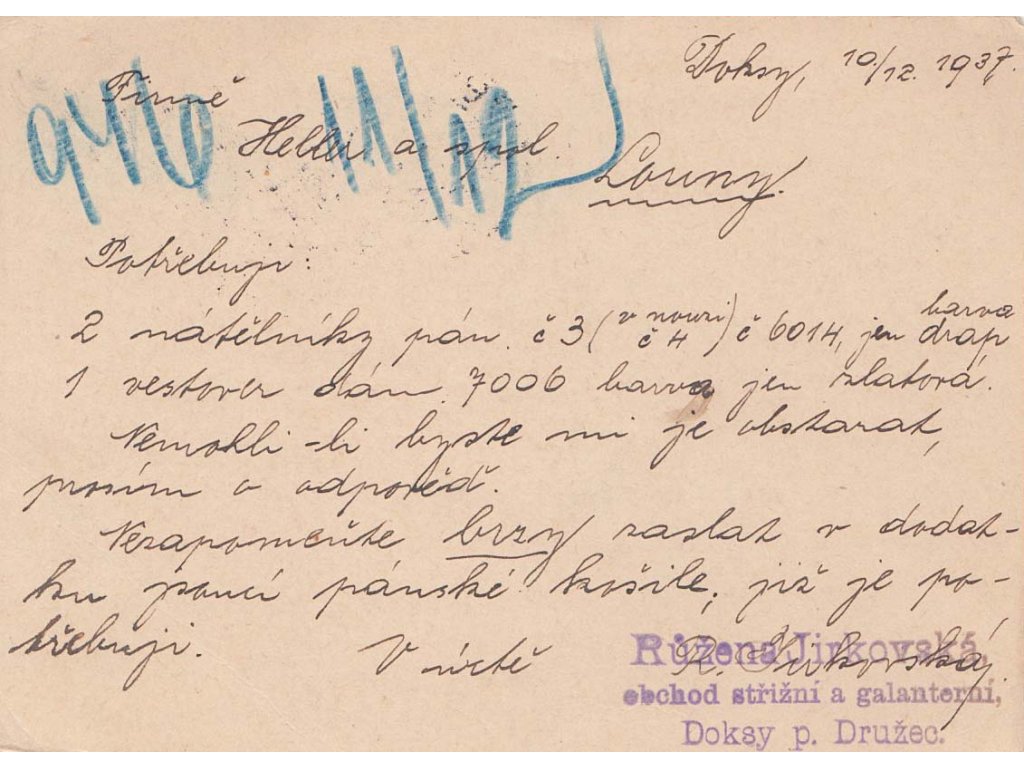 Doksy, 10./12. 1937.
Firmě
Heller a spol.
Louny.
946 11/12
Potřebuji:
2 nátělníky pán. č 3 (v nouzi č 4) č 6014, jen barva drap
1 vestover dám. 7006 barva jen zlatová.
Nemohli-li byste mi je obstarat,
prosím o odpověď.
Nezapomeňte brzy zaslat v dodat-
ku jsoucí pánské košile, již je po-
třebuji.
V úctě R. Jirkovská.
Růžena Jirkovská,
obchod střižní a galanterní,
Doksy p. Družec.